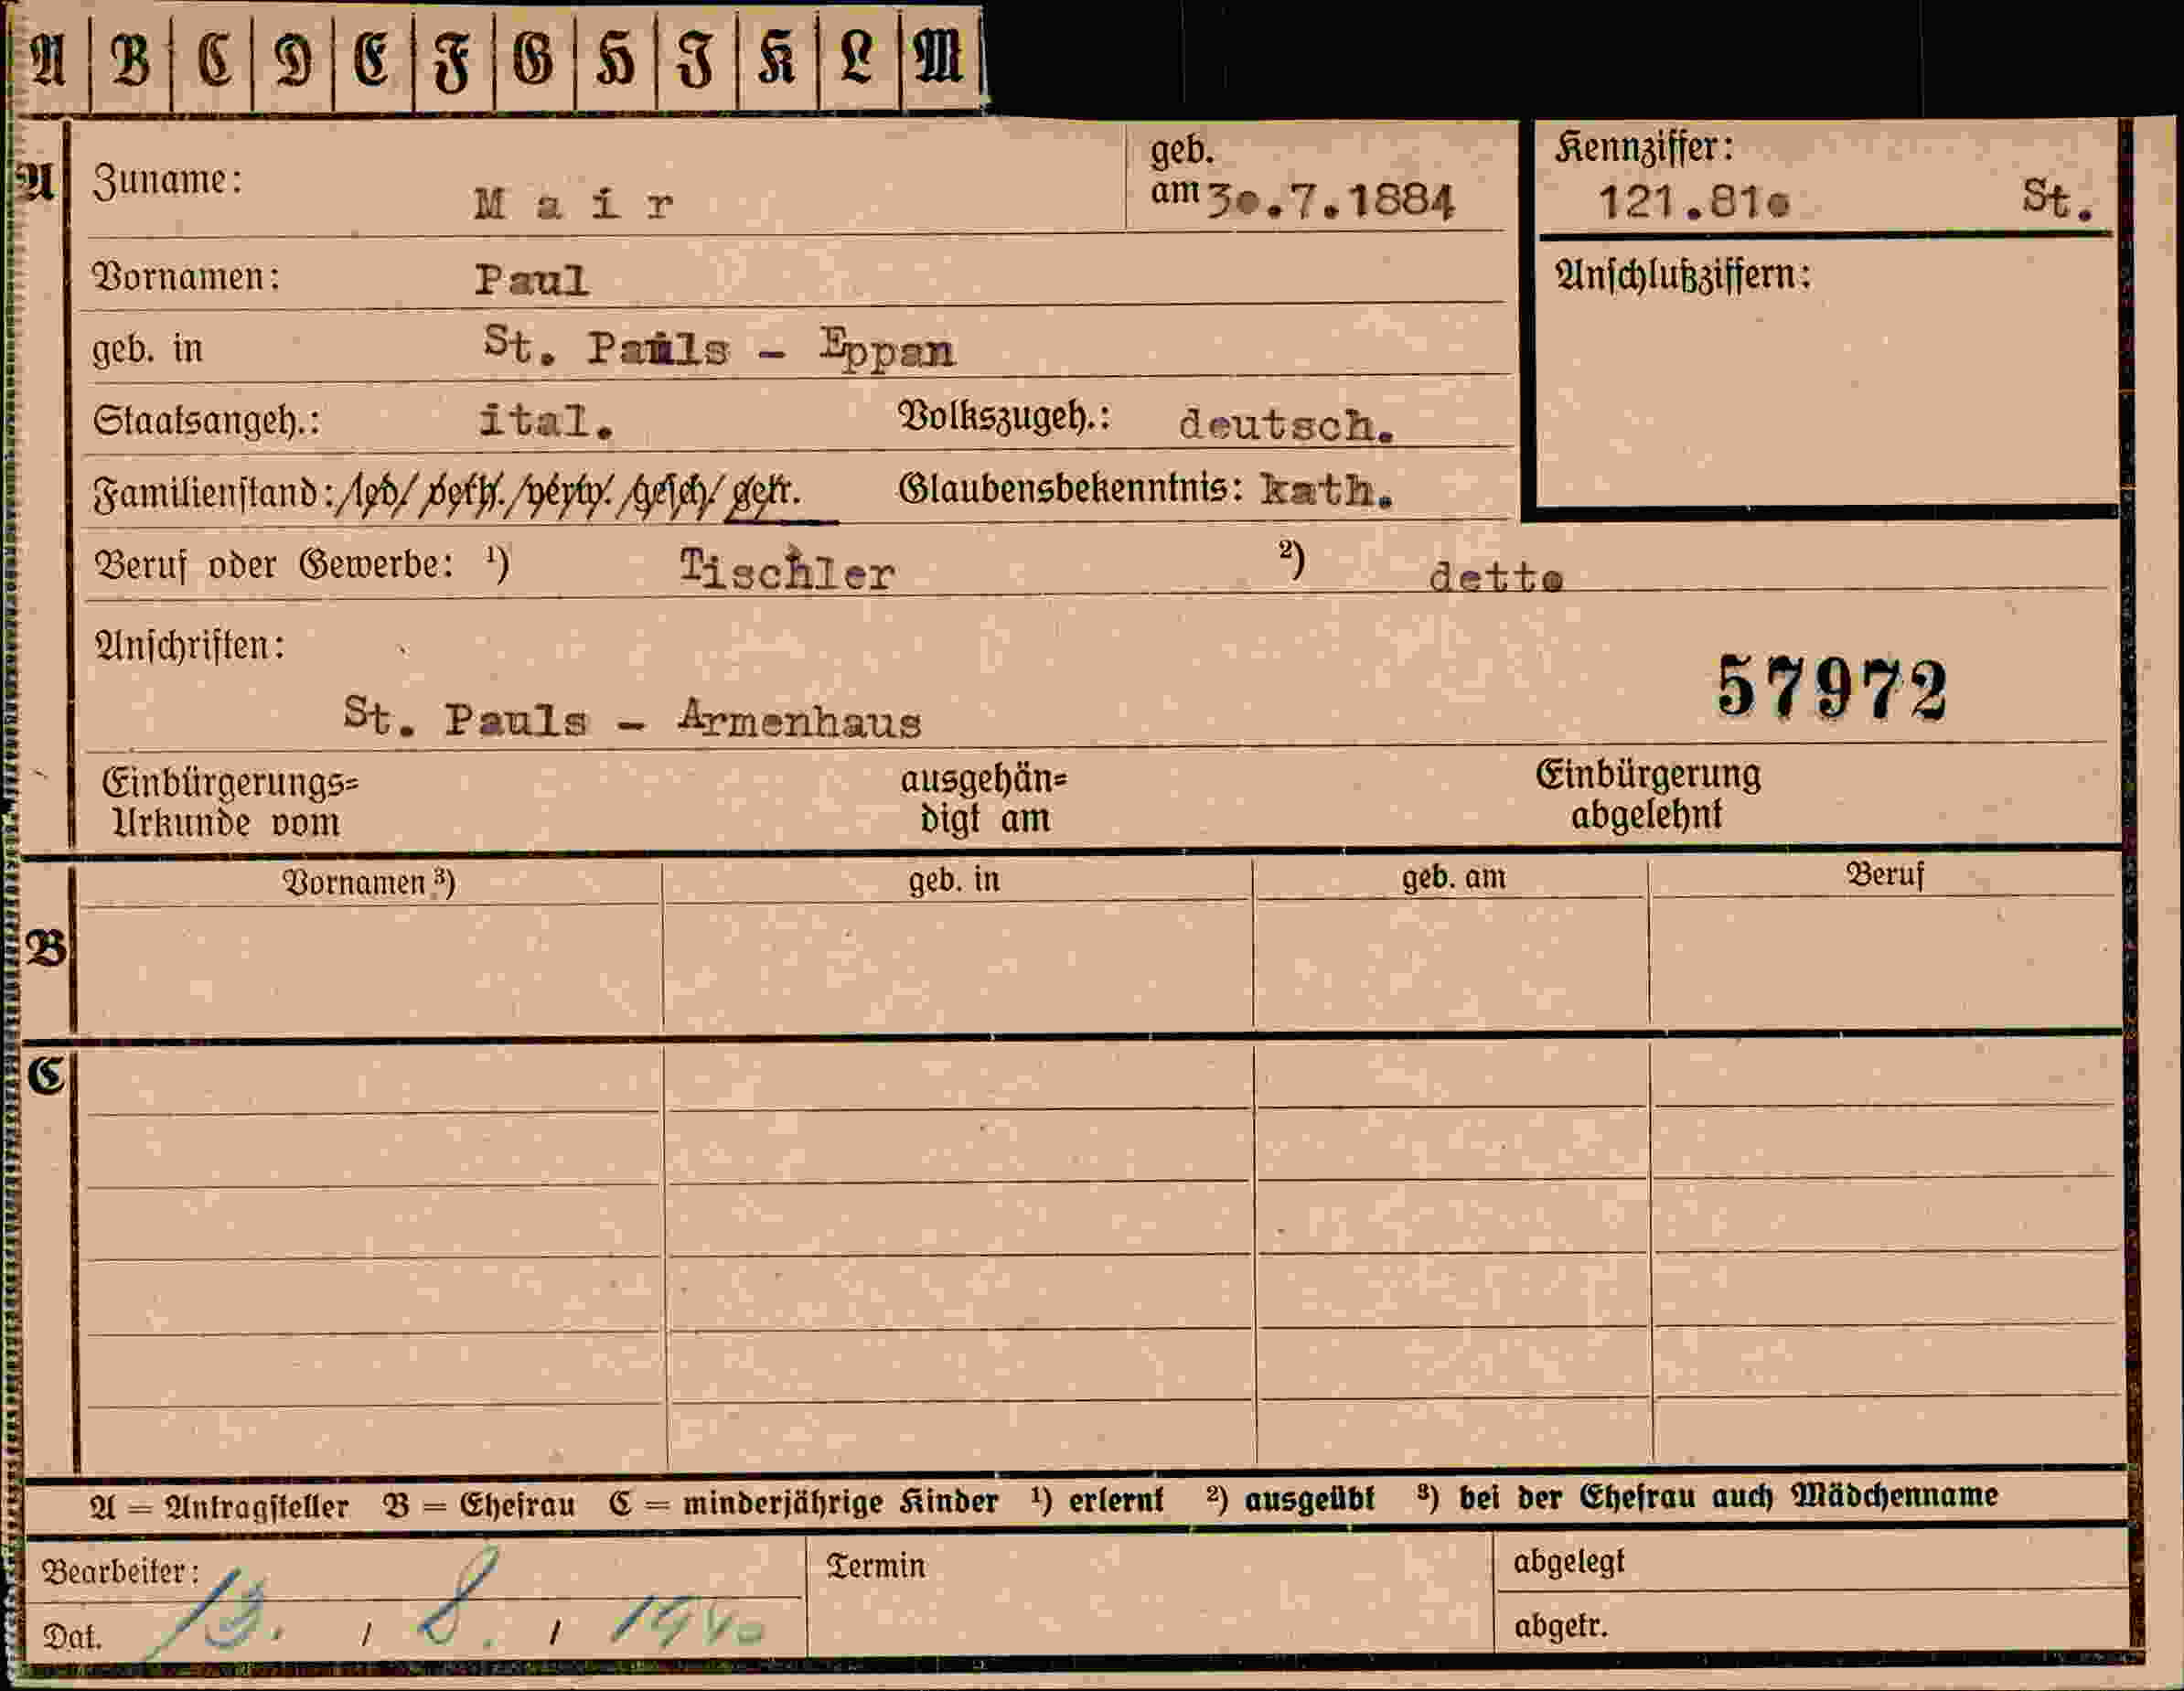 A B C D E F G H I K L M
A Zuname: Mair geb. am 30.7.1884 Kennziffer: 121.810 St.
Vornamen: Paul Anschlußziffern:
geb. in St. Pauls - Eppan
Staatsangeh.: ital. Volkszugeh.: deutsch.
Familienstand: led/ verh./ verw./ gesch/ getr. Glaubensbekenntnis: kath.
Beruf oder Gewerbe: ¹) Tischler ²) detto
Anschriften:
57972
St. Pauls - Armenhaus
Einbürgerungs= ausgehän= Einbürgerung
Urkunde vom digt am abgelehnt
Vornamen ³) geb. in geb. am Beruf
B
C
A = Antragsteller B = Ehefrau C = minderjährige Kinder ¹) erlernt ²) ausgeübt ³) bei der Ehefrau auch Mädchenname
Bearbeiter: Termin abgelegt
Dat. 13. / 8. / 1940 abgetr.